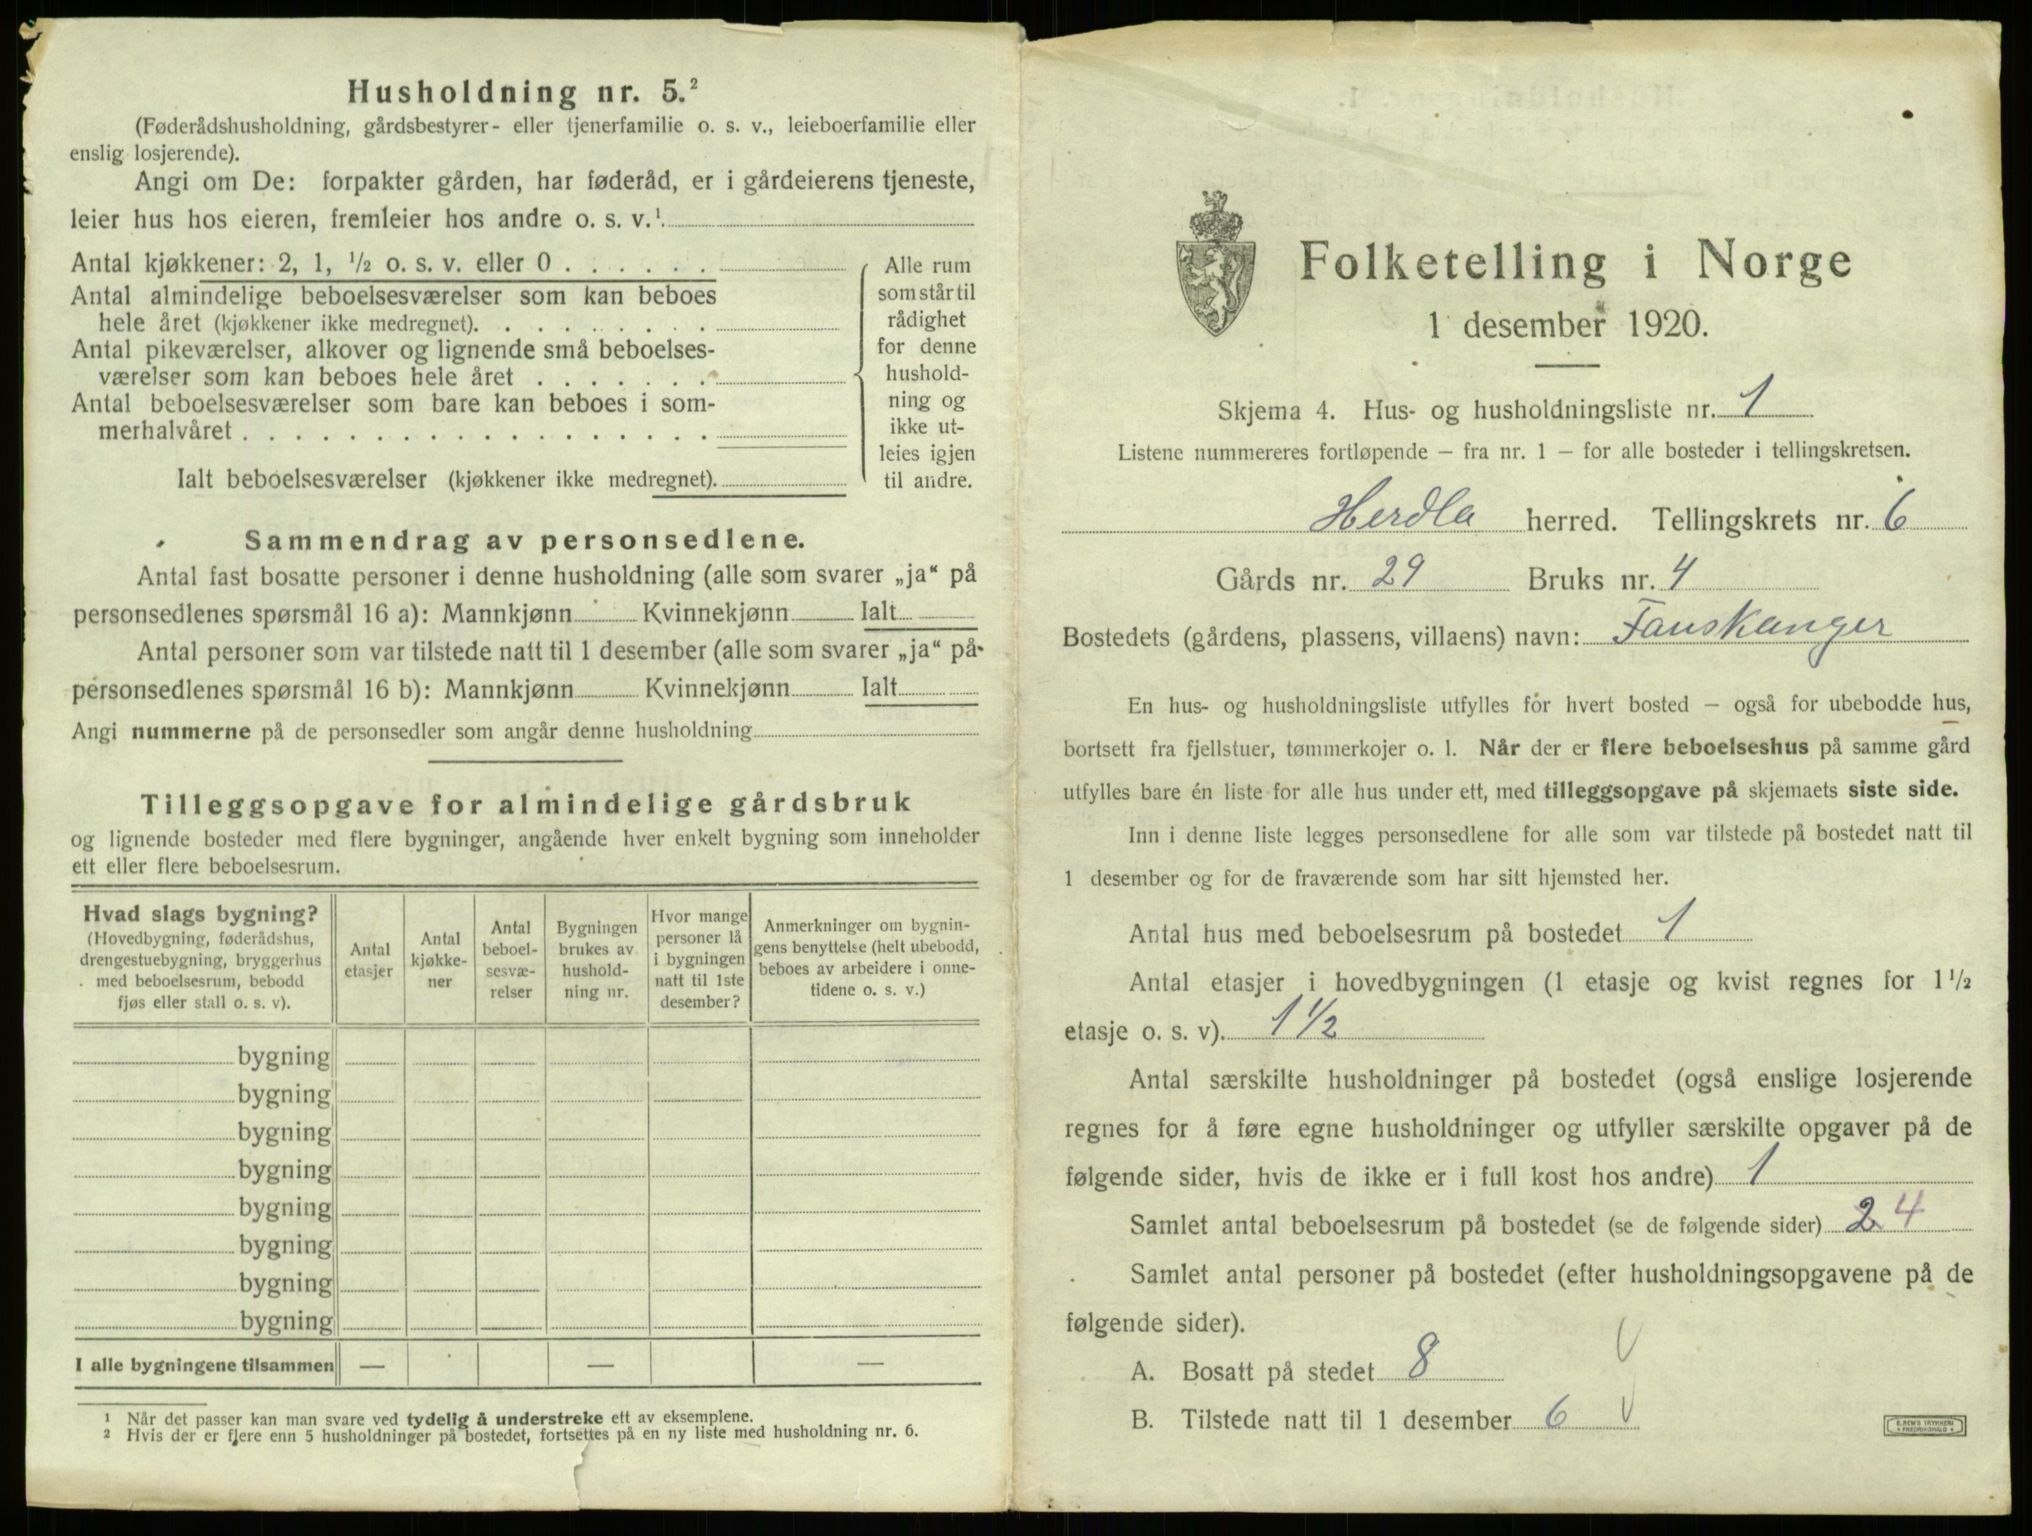 Husholdning nr. 5.²
(Føderådshusholdning, gårdsbestyrer- eller tjenerfamilie o. s. v., leieboerfamilie eller
enslig losjerende).
Angi om De: forpakter gården, har føderåd, er i gårdeierens tjeneste,
leier hus hos eieren, fremleier hos andre o. s. v.¹
Antal kjøkkener: 2, 1, ½ o. s. v. eller 0 . . . . . .
Antal almindelige beboelsesværelser som kan beboes
hele året (kjøkkener ikke medregnet). . . . . . . . .
Antal pikeværelser, alkover og lignende små beboelses-
værelser som kan beboes hele året . . . . . . .
Antal beboelsesværelser som bare kan beboes i som-
merhalvåret . . . . . . . . . . . . . . . . . .
Ialt beboelsesværelser (kjøkkener ikke medregnet).
Alle rum
som står til
rådighet
for denne
hushold-
ning og
ikke ut-
leies igjen
til andre.
Sammendrag av personsedlene.
Antal fast bosatte personer i denne husholdning (alle som svarer „ja“ på
personsedlenes spørsmål 16 a): Mannkjønn Kvinnekjønn Ialt
Antal personer som var tilstede natt til 1 desember (alle som svarer „ja“ på
personsedlenes spørsmål 16 b): Mannkjønn Kvinnekjønn Ialt
Angi nummerne på de personsedler som angår denne husholdning
Tilleggsopgave for almindelige gårdsbruk
og lignende bosteder med flere bygninger, angående hver enkelt bygning som inneholder
ett eller flere beboelsesrum.
Hvad slags bygning?
(Hovedbygning, føderådshus,
drengestuebygning, bryggerhus
med beboelsesrum, bebodd
fjøs eller stall o. s. v).
Antal
etasjer
Antal
kjøkke-
ner
Antal
beboel-
sesvæ-
relser
Bygningen
brukes av
hushold-
ning nr.
Hvor mange
personer lå
i bygningen
natt til 1ste
desember?
Anmerkninger om bygnin-
gens benyttelse (helt ubebodd,
beboes av arbeidere i onne-
tidene o. s. v.)
bygning
bygning
bygning
bygning
bygning
bygning
bygning
bygning
I alle bygningene tilsammen — — —
¹ Når det passer kan man svare ved tydelig å understreke ett av eksemplene.
² Hvis der er flere enn 5 husholdninger på bostedet, fortsettes på en ny liste med husholdning nr. 6.
Folketelling i Norge
1 desember 1920.
Skjema 4. Hus- og husholdningsliste nr. 1
Listene nummereres fortløpende — fra nr. 1 — for alle bosteder i tellingskretsen.
Herdla herred. Tellingskrets nr. 6
Gårds nr. 29 Bruks nr. 4
Bostedets (gårdens, plassens, villaens) navn: Fauskanger
En hus- og husholdningsliste utfylles for hvert bosted — også for ubebodde hus,
bortsett fra fjellstuer, tømmerkojer o. l. Når der er flere beboelseshus på samme gård
utfylles bare én liste for alle hus under ett, med tilleggsopgave på skjemaets siste side.
Inn i denne liste legges personsedlene for alle som var tilstede på bostedet natt til
1 desember og for de fraværende som har sitt hjemsted her.
Antal hus med beboelsesrum på bostedet 1
Antal etasjer i hovedbygningen (1 etasje og kvist regnes for 1½
etasje o. s. v). 1½
Antal særskilte husholdninger på bostedet (også enslige losjerende
regnes for å føre egne husholdninger og utfyller særskilte opgaver på de
følgende sider, hvis de ikke er i full kost hos andre) 1
Samlet antal beboelsesrum på bostedet (se de følgende sider) 2 4
Samlet antal personer på bostedet (efter husholdningsopgavene på de
følgende sider).
A. Bosatt på stedet 8
B. Tilstede natt til 1 desember 6